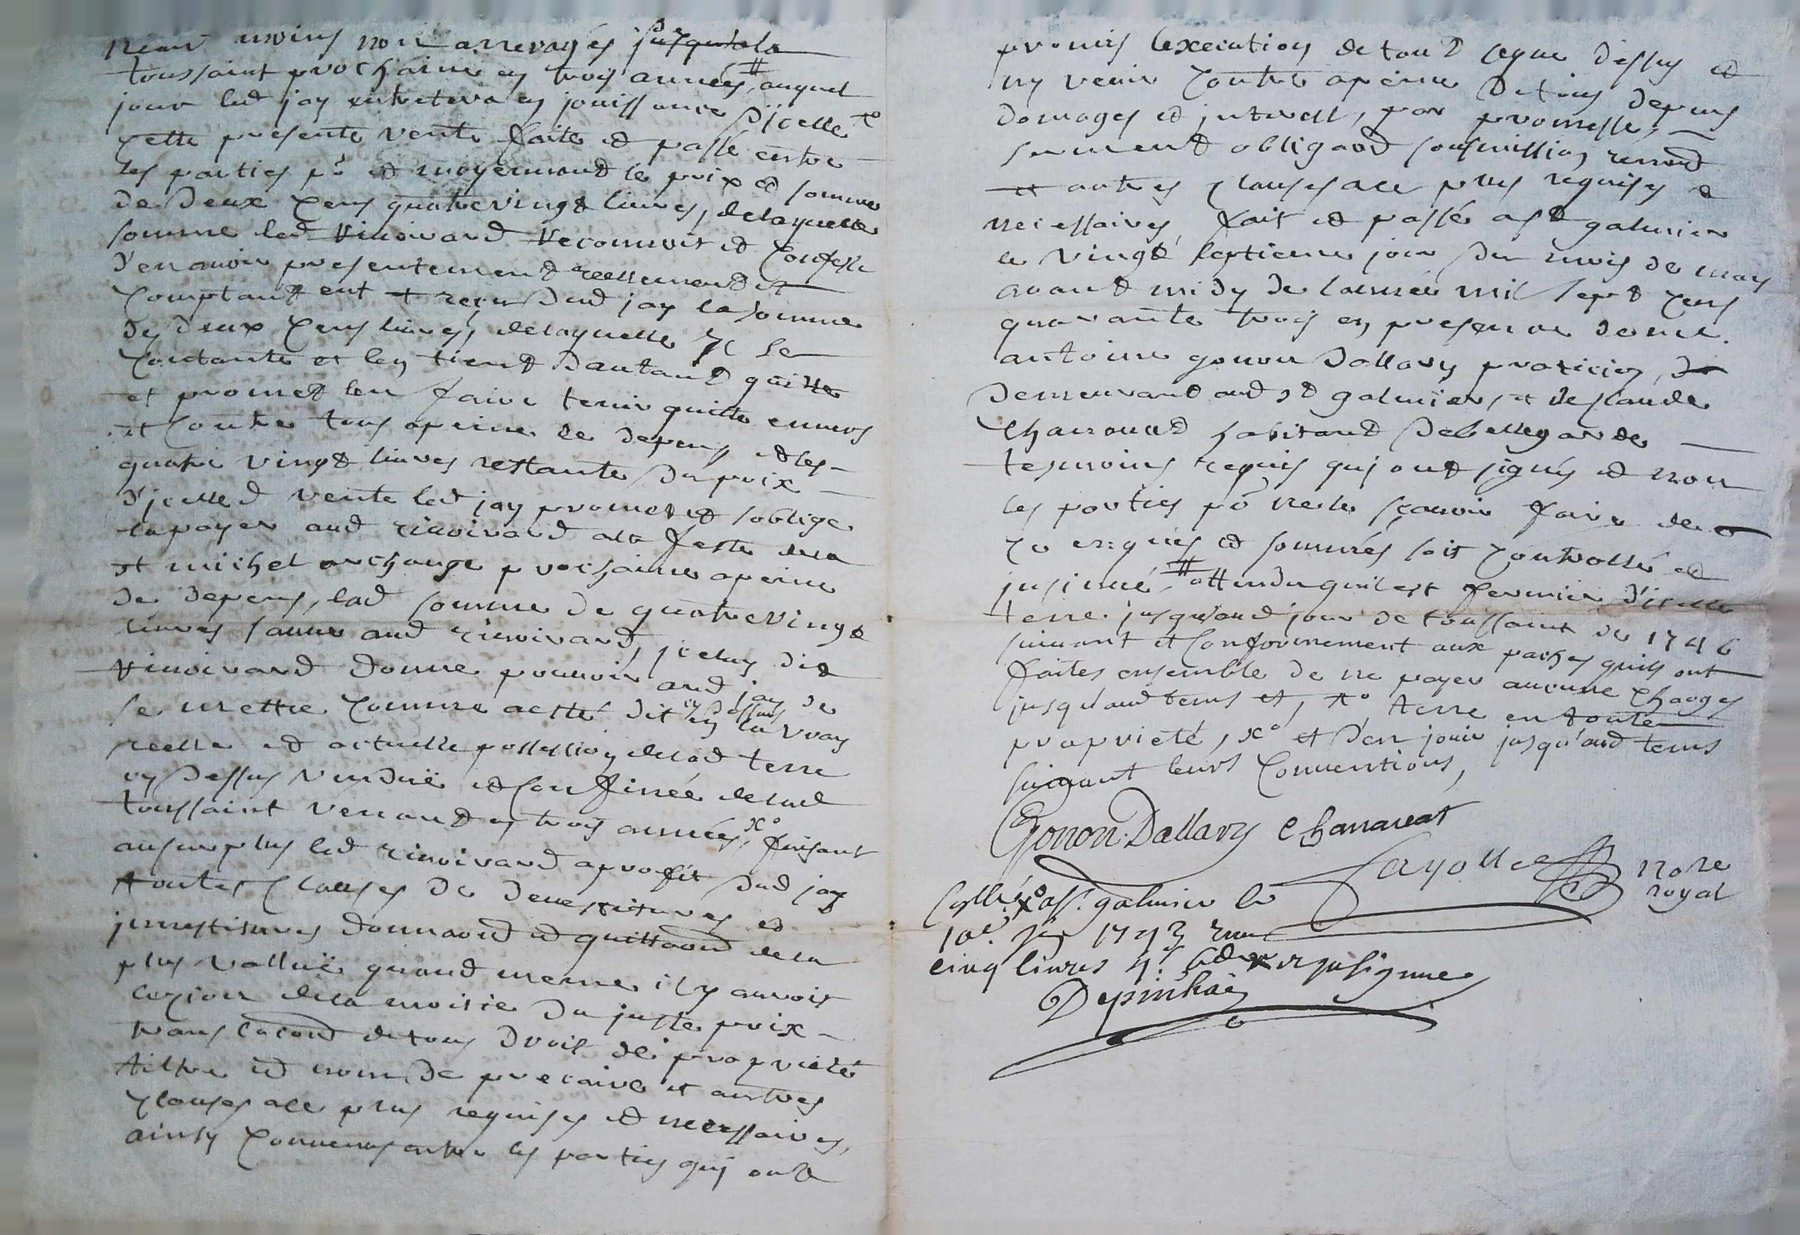 neant moins non arreragés jusqu'a la
toussaint prochaine en trois années,# auquel
jour led jay entrera en jouissance d'jcelle xº
cette presente vente faite et passé entre
les parties po et moyennand le prix et somme
de deux cens quatrevingt livres, de laquelle
somme led rinoirard reconnoit et confesse
d'en avoir presentement reellement et
comptant eut et reçu dud jay la somme
de deux cens livres, de laquelle jl se
contante et len tient d'autand quitte
et promet len faire tenir quitte envers
et contre tous a peine de depens, et les
quatre vingt livres restante du prix
d'jcelle d vente led jay promet et s'oblige
la payer aud rinoirard a la feste de la
st michel archange prochaine a peine
de depens, lad somme de quatre vingt
livres sauve aud rinoirard, jceluy dit
rinoirard donne pouvoir aud jay de
se mettre comme acsté dit en la vray
cy dessus
reelle et actuelle possession de lad terre
cy dessus venduë et confinée de lad
toussaint venand en trois années, xº faisant
au surplus led rinoirard a profit dud jay
toutes clauses de devestitures et
jnvestitures donnand et quittand de la
plus valluë quand meme il y auroit
lezion de la moitie du juste prix
translaond de tous droit de proprieté
tiltre et nom de precaire et autres
clauses a ce plus requises et necessaires,
ainsy convenus entre les parties quj ont
promis l'execution de tout ceque dessus et
ny venir contre a peine de tous depens
domages et jnterest, par promesse,
serment obligaod soumission renond
et autres clauses a ce plus requises e
necessaires, fait et passé a st galmier
le vingt septieme jour du mois de may
avant midy de l'année mil sept cens
quarante trois en presence de me
antoine gonon dallary praticien, de
demeurant aud st galmier, et de claude
Charrouad habitand de bellegarde
tesmoins requis quj ont signés et non
les parties po ne le sçavoir faire de
ce enquis et sommés soit controllé et
jnsinué # attendu qu'il est fermier d'icelle
terre jusqu'aud jour de toussaint de 1746
suivant et conformement aux paches quils ont
faites ensemble de ne payer aucune charges
jusqu'aud tems et, xº terre en toute
proprieté, xº et d'en jouir jusqu'aud tems
suivant leurs conventions,
Gonon Dallary Charraveat
Fayolle nore
royal
Collé a st. galmier le
10e. 1743 reçu
cinq livres 4s.
Depinhac